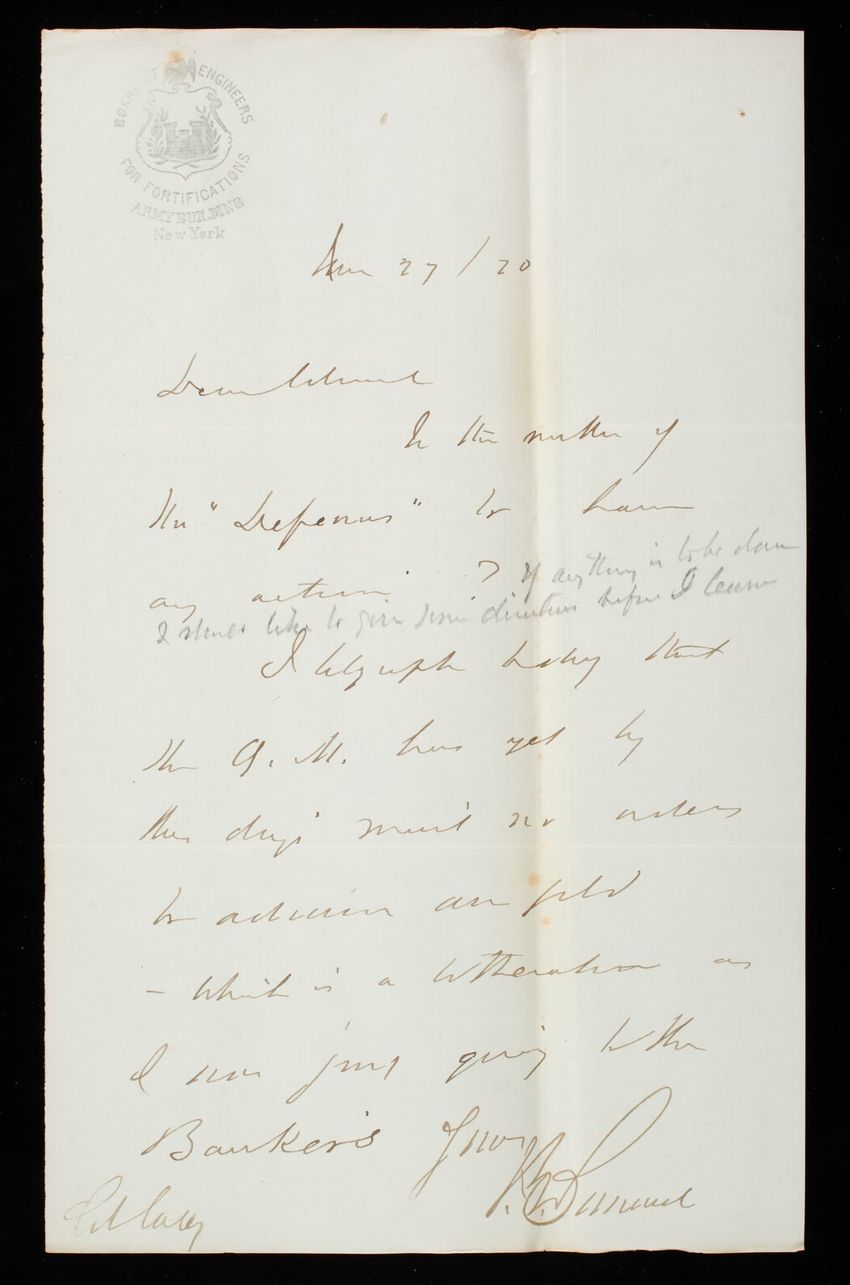 BOARD OF ENGINEERS
FOR FORTIFICATIONS
ARMY BUILDING
New York
27 / 70
Dear Colonel
In the matter of
the "Defenses" to have
any action ?
If anything is to be done
I should like to give some directions before I leave
I telegraph today that
the Q. M. has yet by
this day's mail no orders
to advance any gold
- which is a botheration as
I was just going to the
Bankers Yours
Col Casey